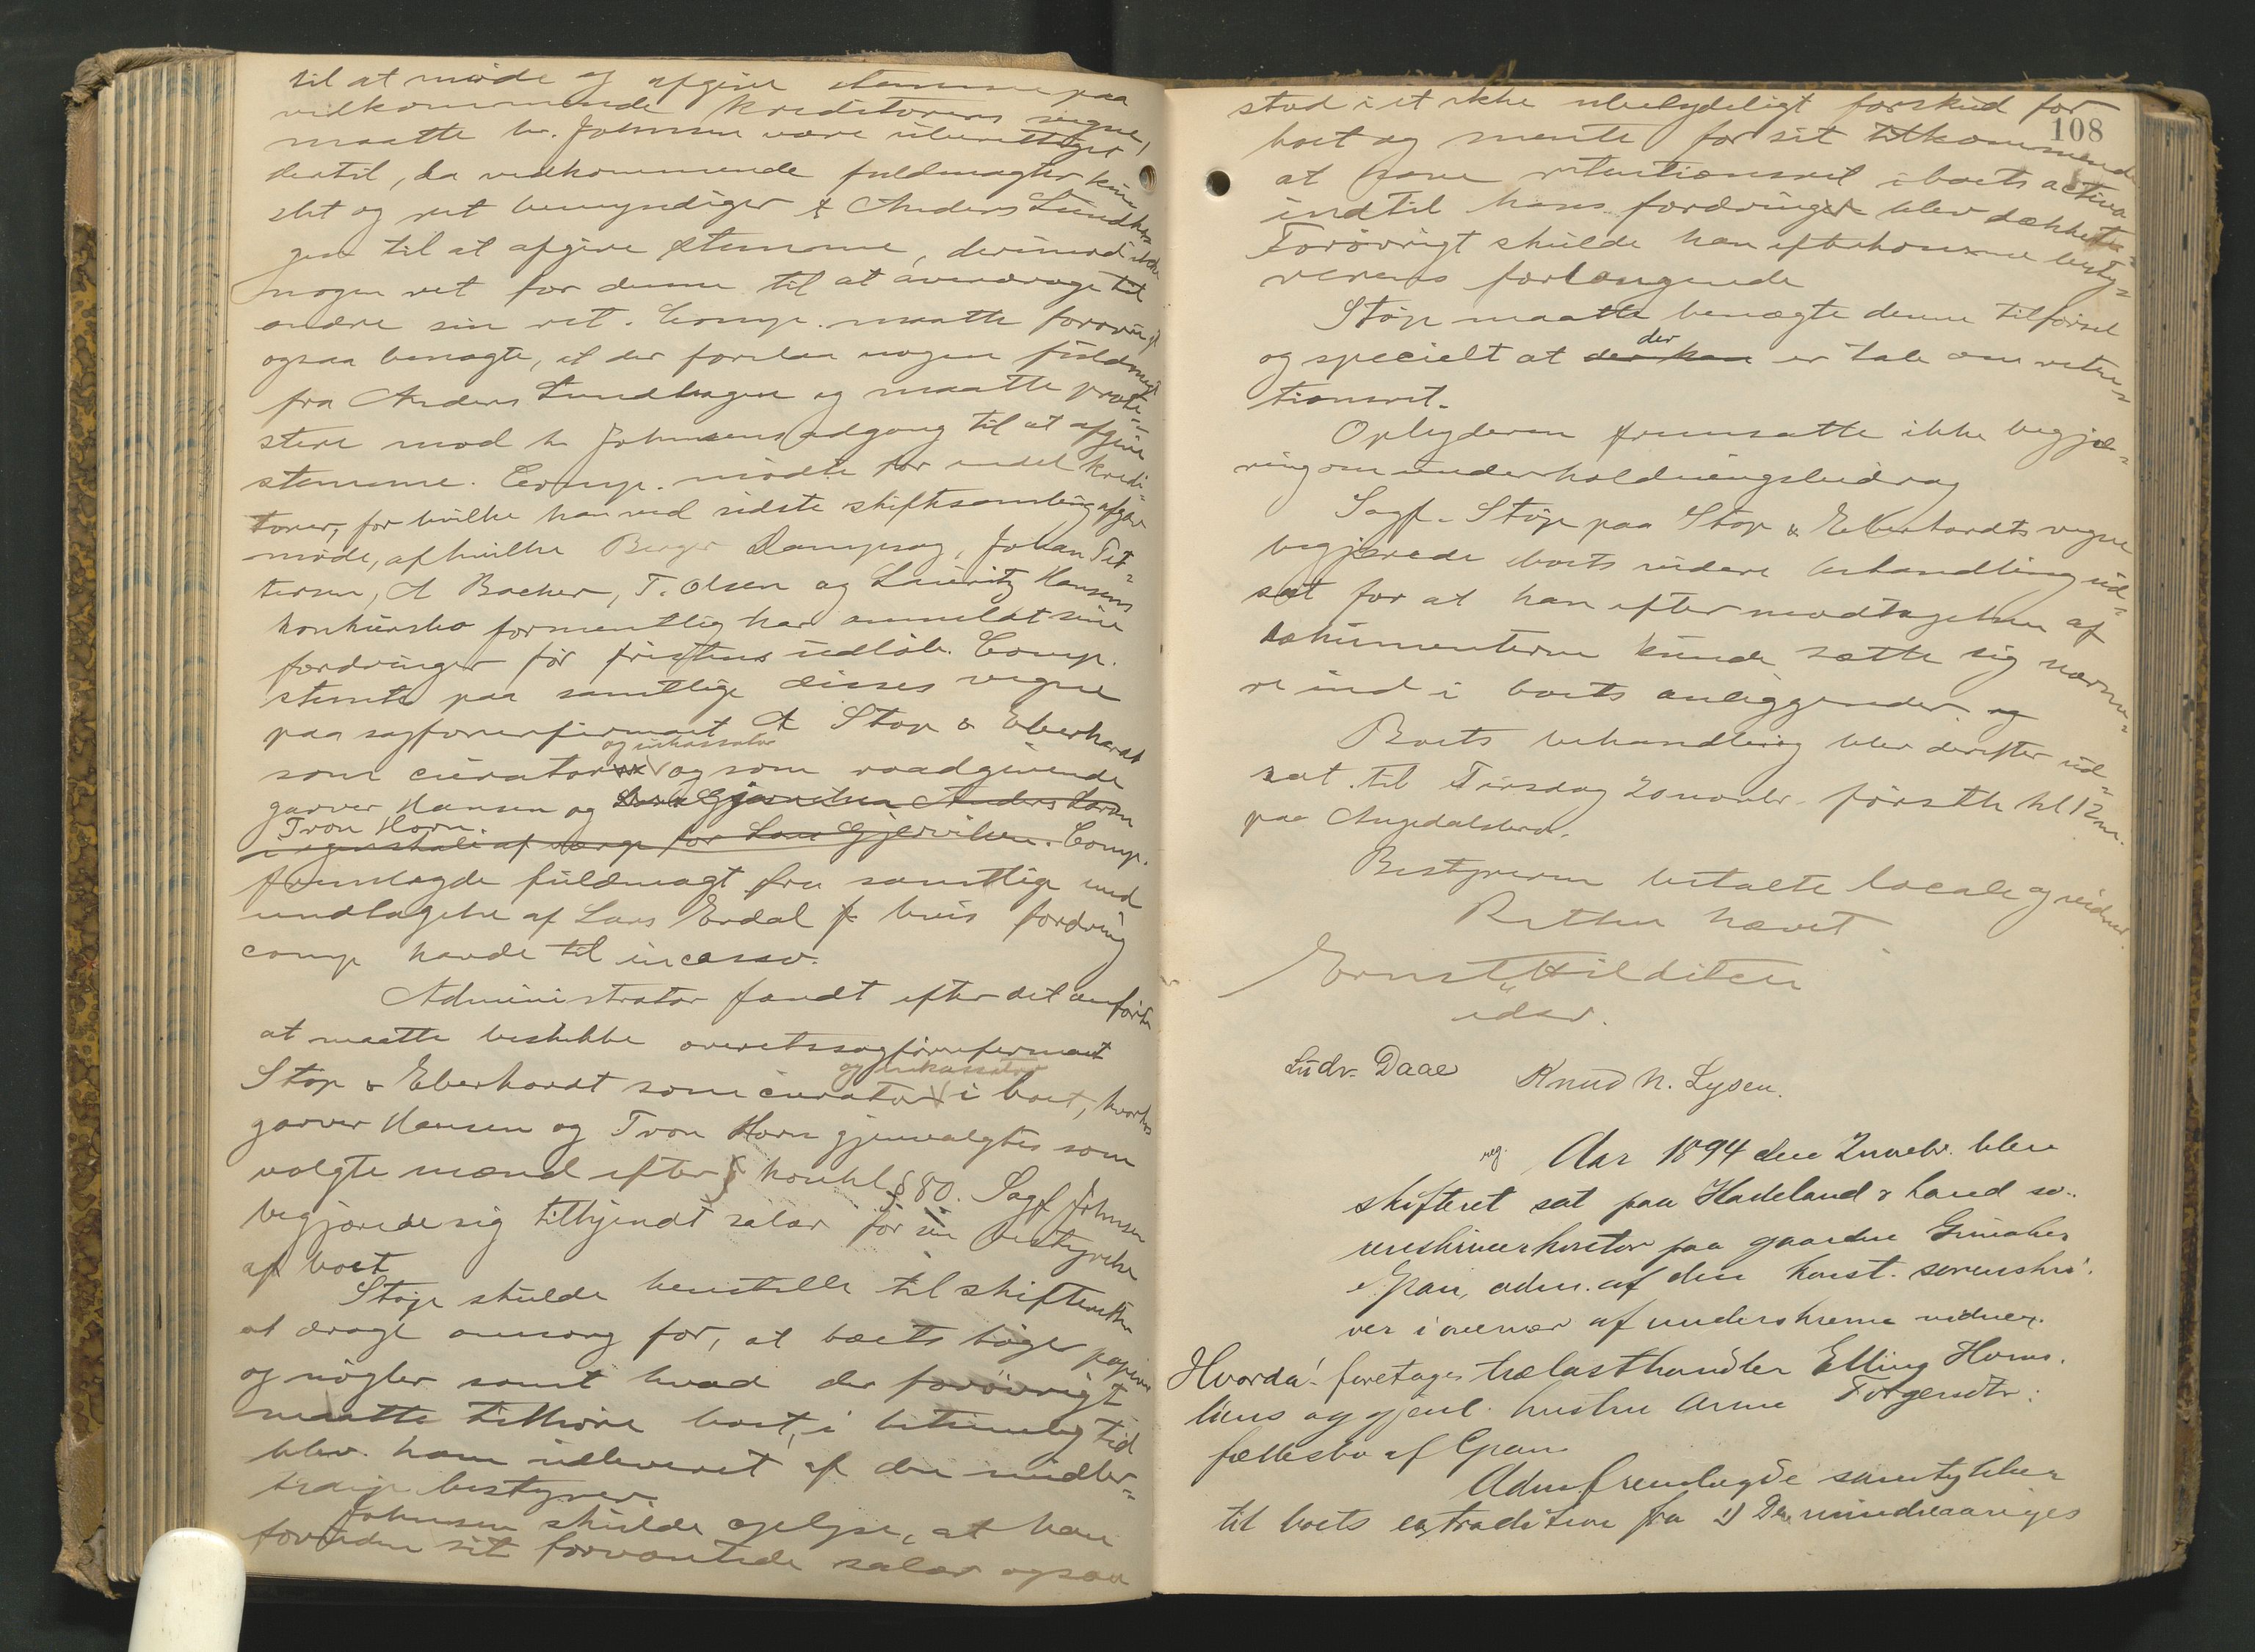 til at møde og afgive stemme paa
vedkommende kreditorers vegne,
maatte hr. Johnsen være uberettiget
dertil, da vedkommende fuldmagter kun
slet og ret bemyndiger Anders Lundha-
gen til at afgive stemme, derimod ikke
nogen ret for denne til at overdrage til
andre sin ret. Comp. maatte forøvrigt
ogsaa benægte, at der forelaa nogen fuldmagt
fra Anders Lundhagen og maatte prote-
stere mod hr Johnsens adgang til at afgive
stemme. Comp. mødte for endel kredi-
torer, for hvilke han ved sidste skiftesamling afgav
møde, af hvilke Berger Dampsag, Johan Pet-
tersen, A Backer, T. Olsen og Lauritz Hansens
konkursbo formentlig har anmeldt sine
fordringer før fristens udløb. Comp.
stemte paa samtlige disses vegne
paa sagførerfirmaet Støp & Eberhardt
og inkassator
som curator og som raadgivende
garver Hansen og Lars Gjærviken Anders Larsen
Tron Horn
i egenskab af værge for Lars Gjerviken. Comp.
fremlagde fuldmagt fra samtlige med
undtagelse af Lars Erdal hvis fordring
comp havde til incasso.
Administrator fandt efter det anførte
at maatte beskikke overetssagførerfirmaet
og inkassator
Støp & Eberhardt som curator i boet, hvorhos
garver Hansen og Tron Horn gjenvalgtes som
valgte mænd efter konkl § 80. Sagf Johnsen
begjærede sig tilkjendt salær for sin bestyrelse
af boet
Støp skulde henstille til skifteretten
at drage omsorg for, at boets bøger papirer
og nøgler samt hvad der forøvrigt
maatte tilhøre boet, i betimelig tid
blev ham udleveret af den midler-
tidige bestyrer.
Johnsen skulde oplyse, at han
foruden sit forventede salær ogsaa
108
stod i et ikke ubetydeligt forskud for
boet og mente for sit tilkommende
at have retentionsret i boets activa
indtil hans fordringer blev dækkede
Forøvrigt skulde han efterkomme besty-
rerens forlangende
Støp maatte benægte denne tilførsel
der
og specielt at der kan er tale om reten-
tionsret.
Opbyderen fremsatte ikke begjæ-
ring om underholdningsbidrag
Sagf. Støp paa Støp & Eberhardts vegne
begjærede boets videre behandling ud-
sat for at han efter modtagelsen af
dokumenterne kunde sætte sig nærme-
re ind i boets anliggender. og
Boets behandling blev derefter ud-
sat til Tirsdag 20 novbr. førstk kl 12 m.
paa Augedalsbro.
Bestyreren betalte locale og vidner.
Retten hævet
Ernst Hilditch
edsv.
Ludv. Daae Knud N. Lysen.
reg. Aar 1894 den 2 novbr. blev
skifteret sat paa Hadeland & Land so-
renskriverkontor paa gaarden Grinaker
i Gran, adm. af den konst. sorenskri-
ver i overvær af underskrevne vidner.
Hvorda! foretages trælasthandler Elling Horns-
liens og gjenl. hustru Anne Torgersdtr:
fællesbo af Gran
Adm. fremlagde samtykker
til boets extradition fra 1) De mindreaariges